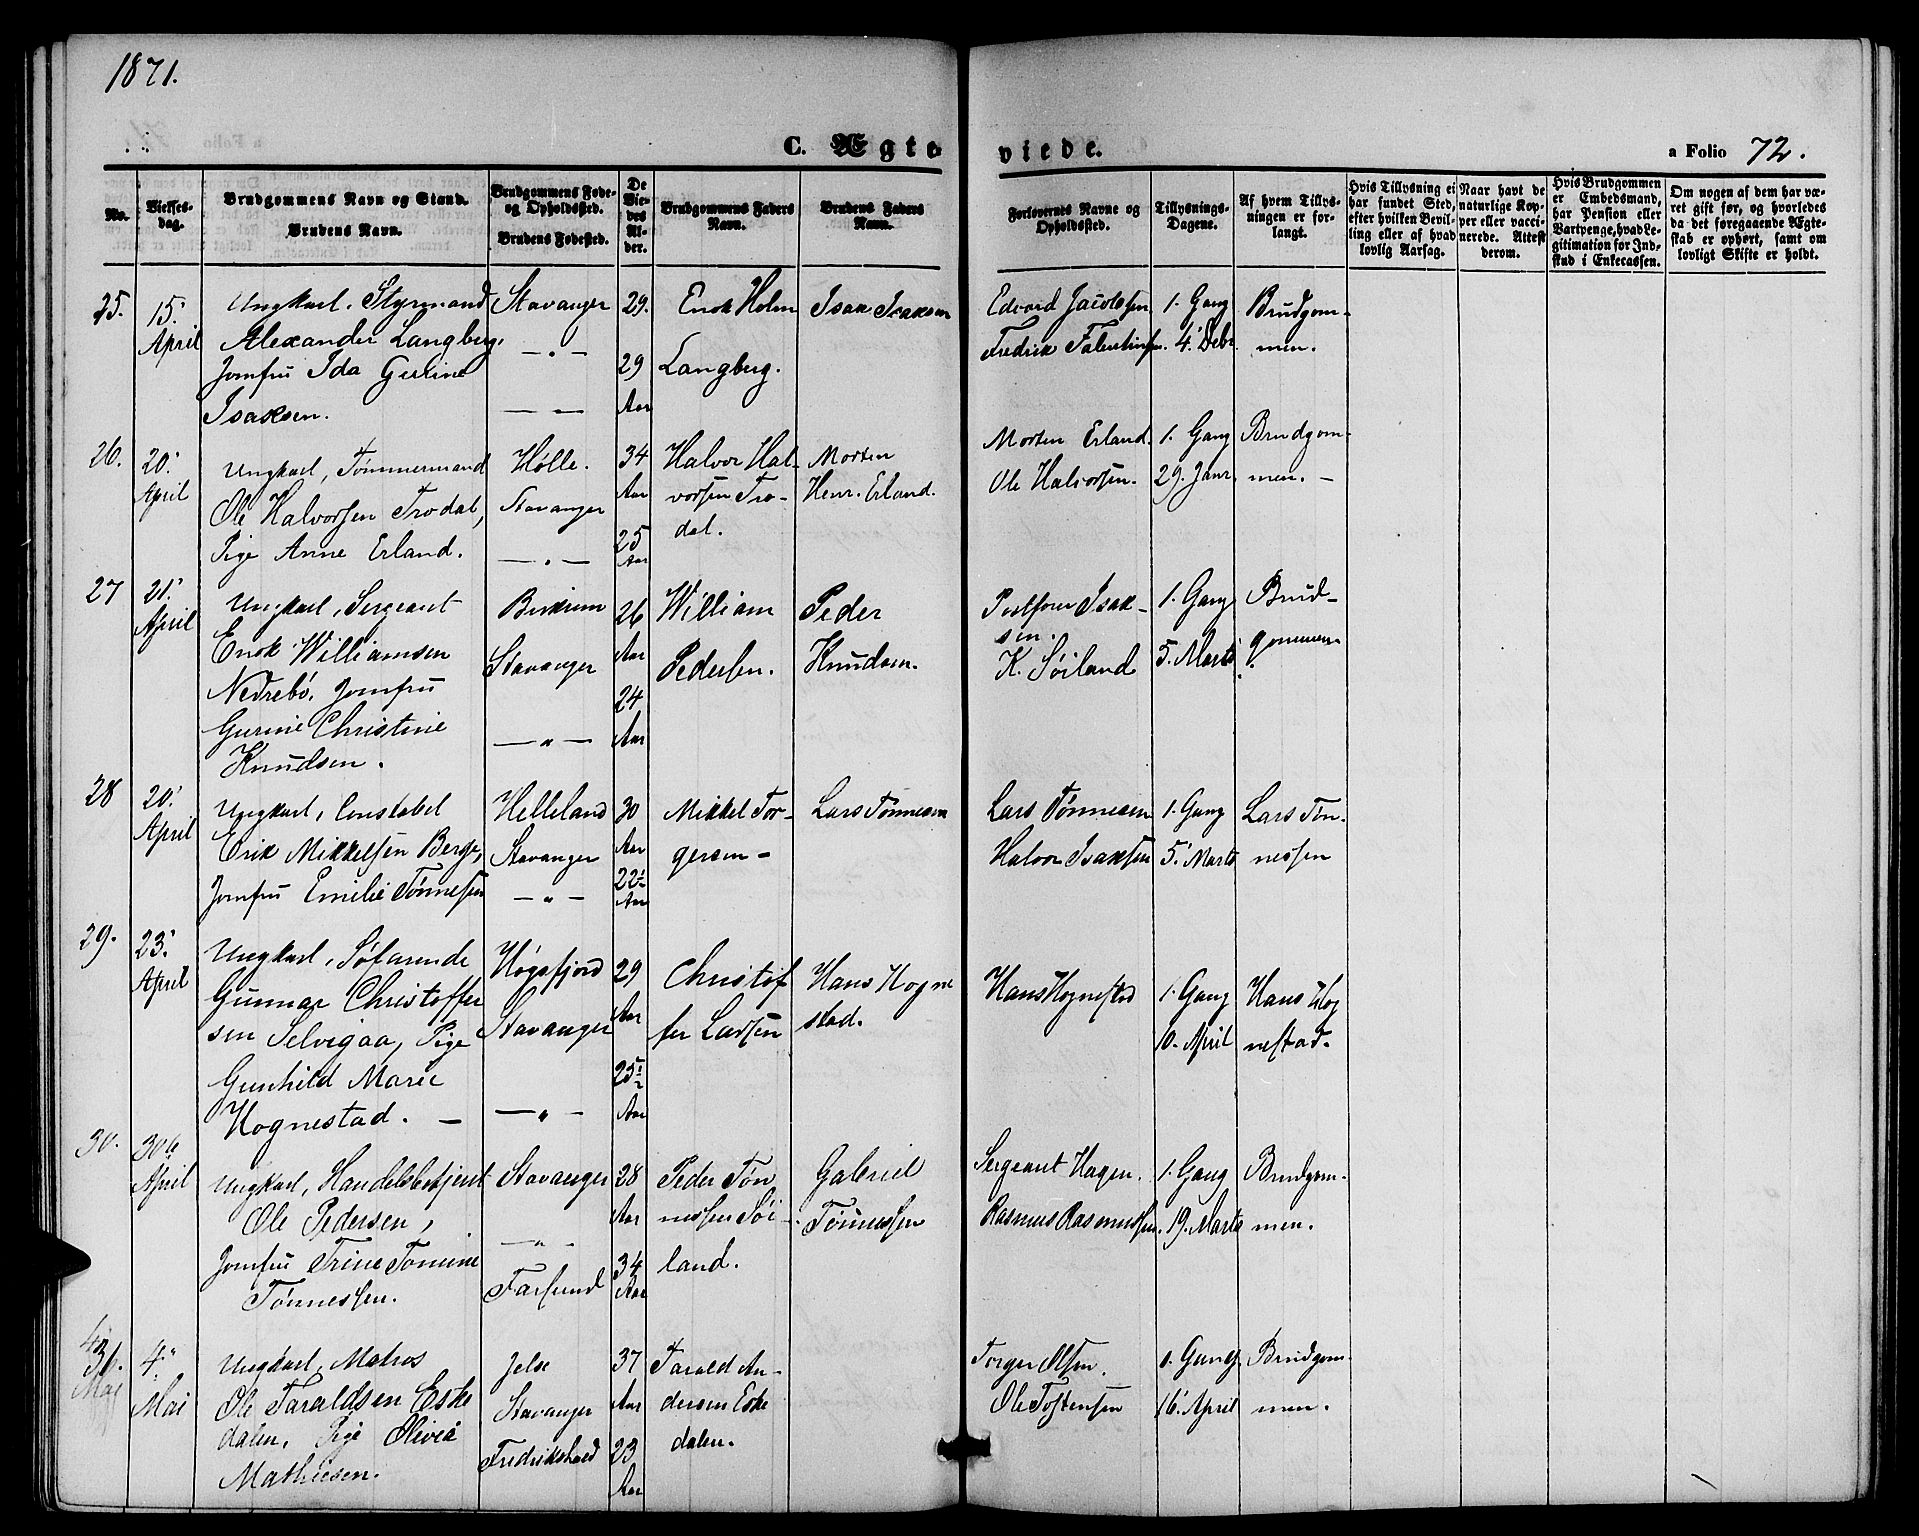 1871.
C. Ægte
viede.
a Folio 72.
No.
Vielses-
dag.
Brudgommens Navn og Stand.
Brudens Navn.
Brudgommens Føde-
og Opholdssted.
Brudens Fødested.
De
Vie-
des
Al-
der.
Brudgommens Faders
Navn.
Brudens Faders
Navn.
Forlovernes Navne og
Opholdssted.
Tillysnings-
Dagene.
Af hvem Tillys-
ningen er for-
langt.
Hvis Tillysning ei
har fundet Sted,
efter hvilken Bevil-
ling eller af hvad
lovlig Aarsag.
Naar havt de
naturlige Kop-
per eller vacci-
nerede. Attest
derom.
Hvis Brudgommen
er Embedsmand,
har Pension eller
Vartpenge, hvad Le-
gitimation for Ind-
skud i Enkecassen.
Om nogen af dem har væ-
ret gift før, og hvorledes
da det foregaaende Ægte-
skab er ophørt, samt om
lovligt Skifte er holdt.
25.
15.
April
Ungkarl, Styrmand
Alexander Langberg.
Jomfru Ida Gurine
Isaksen.
Stavanger
— „ —
— —
29.
29
Aar
Enok Holm
Langberg.
Isak Isaksen
Edvard Jacobsen
Fredrik Falentinsen.
1. Gang
4. Debr.
Brudgom-
men.
26.
20.
April
Ungkarl, Tømmermand
Ole Halvorsen Trodal,
Pige Anne Erland.
Hølle.
Stavanger
— „ —
34
Aar
25
Aar
Halvor Hal-
vorsen Tro-
dal.
Morten
Henr. Erland.
Morten Erland.
Ole Halvorsen.
1. Gang
29. Janr.
Brudgom-
men. —
27
21.
April
Ungkarl, Sergeant
Enok Williamsen
Nedrebø, Jomfru
Gurine Christine
Knudsen.
Birkrem
Stavanger
— „ —
26
Aar
24
Aar
William
Pedersen.
Peder
Knudsen.
Postfører Isak-
sen.
K. Søiland
1. Gang
5. Marts
Brud-
gommen.
28
20.
April
Ungkarl, Constabel
Erik Mikkelsen Berge,
Jomfru Emilie Tønnesen
Helleland
Stavanger
— „ —
30
Aar
22
Aar
Mikkel Tor-
gersen —
Lars Tønnesen
Lars Tønnesen
Halvor Isaksen
1. Gang
5. Marts
Lars Tøn-
nessen
29.
23.
April
Ungkarl, Søfarende
Gunnar Christoffer
sen Selvigaa, Pige
Gunhild Marie
Hognestad. —
Høgsfjord
Stavanger
— „ —
29
Aar
25
Aar
Christof
fer Larsen
Hans Hogne
stad.
Hans Hognestad
1. Gang
10. April
Hans Hog
nestad.
30.
30.
April
Ungkarl, Handelsbetjent
Ole Pedersen,
Jomfru Trine Tomine
Tønnessen.
Stavanger
— „ —
Farsund
28
Aar
34
Aar
Peder Tøn
nessen Søi-
land.
Gabriel
Tønnessen
Sergeant Hagen.
Rasmus Rasmussen.
1. Gang
19. Marts
Brudgom-
men.
31.
4.
Mai
Ungkarl, Matros
Ole Taraldsen Eske
dalen, Pige Olivia
Mathiesen.
Jelse
Stavanger
Fredrikshald
37
Aar
23
Aar
Tarald An-
dersen Eske
dalen.
Torger Olsen.
Ole Tostensen
1. Gang
16. April
Brudgom-
men.